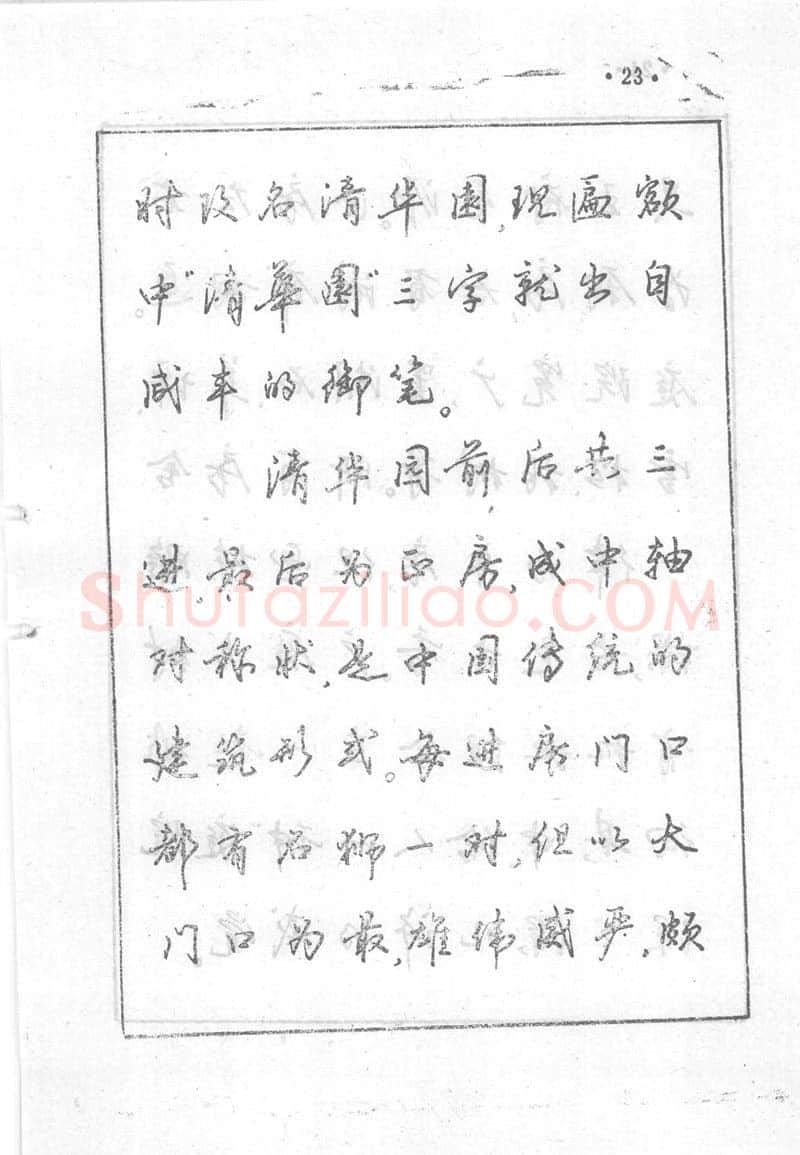 ·23·
时改名清华园,现匾额
中"清华园"三字就出自
咸丰的御笔。
清华园前后共三
进,最后为正房,成中轴
对称状,是中国传统的
建筑形式。每进房门口
都有石狮一对,但以大
门口为最,雄伟威严,颇
Shufaziliao.COM